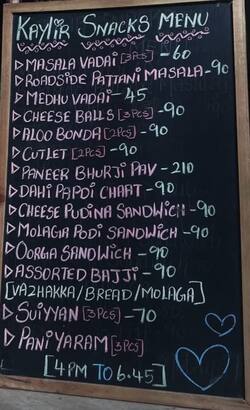 KAYLIR SNACKS MENU
▷ MASALA VADAI [3PCS] - 60
▷ ROADSIDE PATTANI MASALA - 90
▷ MEDHU VADAI - 45
▷ CHEESE BALLS [3PCS] - 90
▷ ALOO BONDA [2PCS] - 90
▷ CUTLET [2PCS] - 90
▷ PANEER BHURJI PAV - 210
▷ DAHI PAPDI CHAAT - 90
▷ CHEESE PUDINA SANDWICH - 90
▷ MOLAGA PODI SANDWICH - 90
▷ OORGA SANDWICH - 90
▷ ASSORTED BAJJI - 90
[VAZHAKKA/BREAD/MOLAGA]
▷ SUIYYAN [3PCS] - 70
▷ PANIYARAM [3PCS]
[4PM TO 6.45]